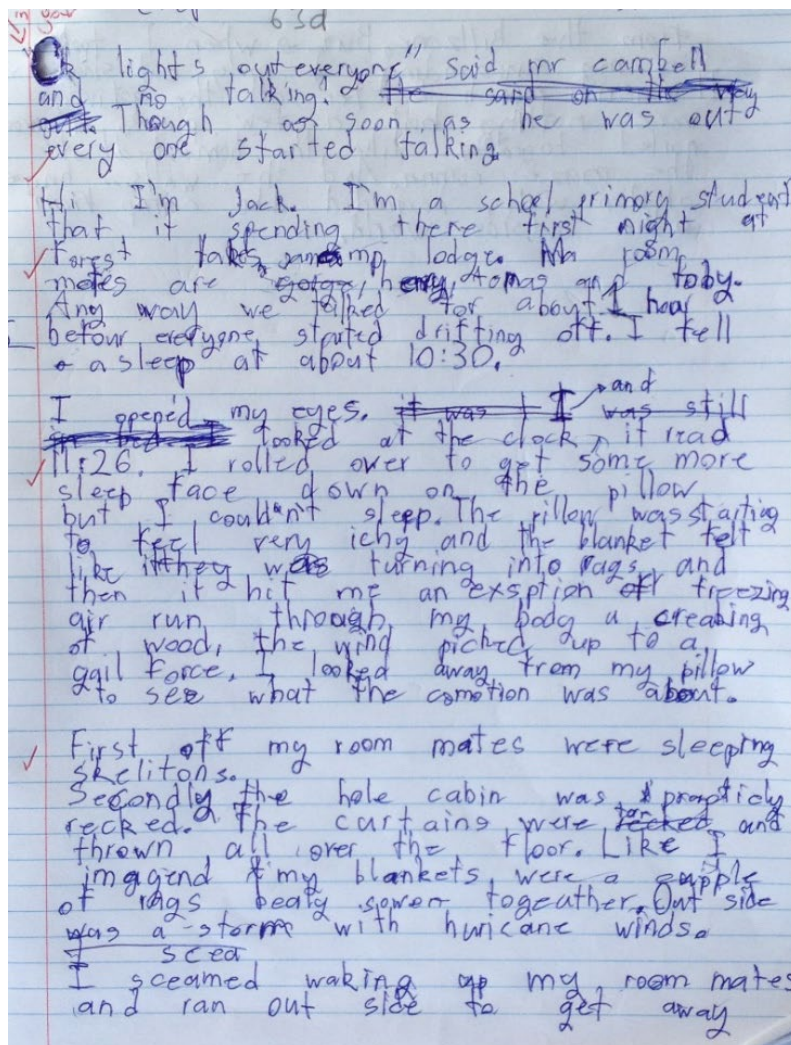 in your
63d
Ok lights out everyone" said mr campbell
and no talking. He said on the way
out. Though as soon as he was out
every one started talking.
Hi I'm Jack. I'm a school primory student
that it spending there first night at
Forest lodge. Ma room
mates are gorge, henry, tomas and toby.
Any way we talked for about 1 hour
befour everyone started drifting off. I fell
asleep at about 10:30.
and
I opened my eyes. it was I was still
in bed. I looked at the clock, it read
11:26. I rolled over to get some more
sleep face down on the pillow
but I couldn't sleep. The pillow was starting
to feel very ichy and the blanket felt
like they was turning into rags, and
then it hit me an exsption of freezing
air run through my body a creaking
of wood, the wind picked up to a
gail force. I looked away from my pillow
to see what the comotion was about.
First off my room mates were sleeping
skelitons.
Secondly the hole cabin was practicly
recked. The curtains were tor and
thrown all over the floor. Like I
imagend my blankets were a cupple
of rags sowen togeather. Out side
was a storm with huricane winds.
I scea
I sceamed waking up my room mates
and ran out side to get away